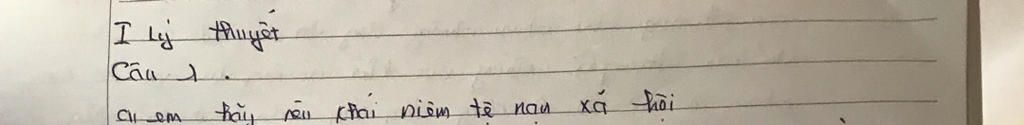 I Lý thuyết
Câu 1.
a, em hãy nêu khái niệm tệ nạn xã hội